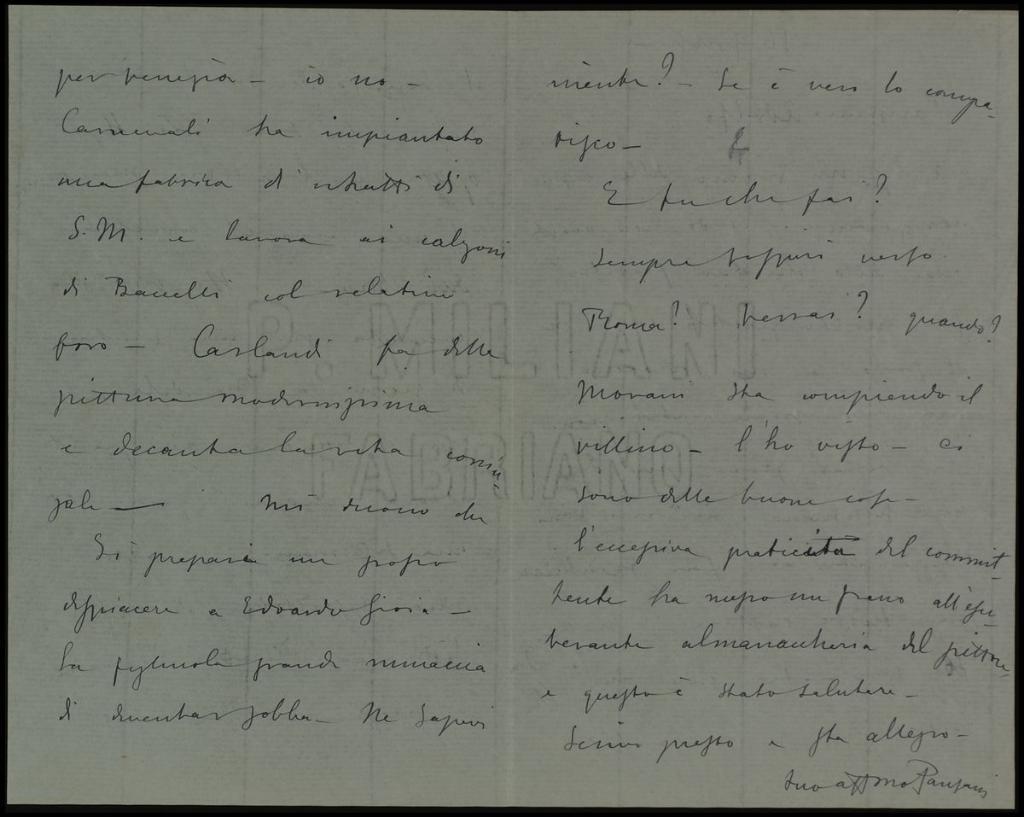 per Venezia – io no –
ha impiantato
una fabrica di ritratti di
S. M. e lavora ai calzoni
di Baccelli col relativo
foro – Carlandi fa della
pittura modernissima
e decanta la vita coniu-
gale — Mi dicono che
si prepari un grosso
dispiacere a Edoardo Gioia –
la figliuola grande minaccia
di diventar gobba – Ne sapevi
niente? – Se è vero lo compa-
tisco –
E tu che fai?
Sempre sospiri verso
Roma? Verrai? quando?
Morani sta compiendo il
villino – l'ho visto – ci
sono delle buone cose –
l'eccessiva praticità del commit-
tente ha messo un freno all'esu-
berante almanaccheria del pittore
e questo è stato salutare –
Scrivi presto e sta allegro –
tuo affmo
P. MILIANI
FABRIANO